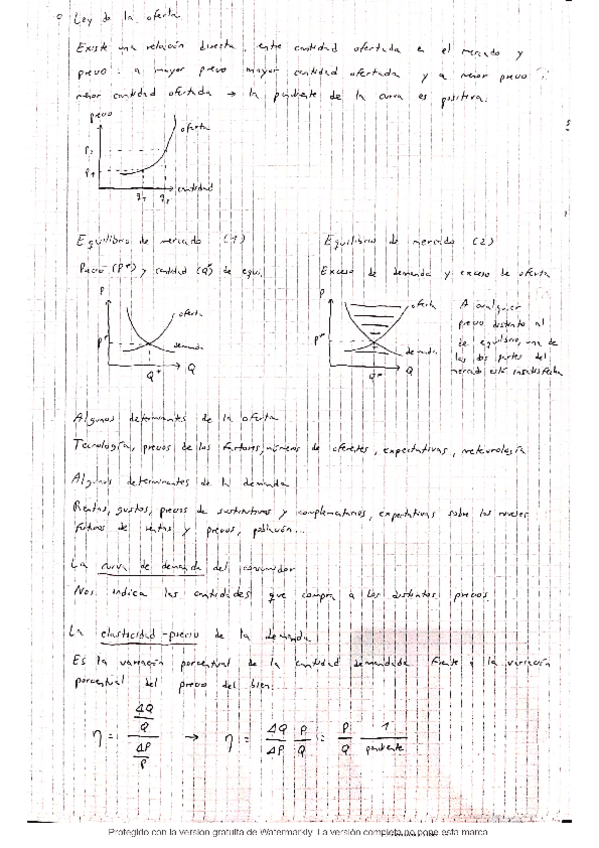 o Ley de la oferta
Existe una relación directa entre cantidad ofertada en el mercado y
precio: a mayor precio mayor cantidad ofertada y a menor precio
menor cantidad ofertada → la pendiente de la curva es positiva.
precio
oferta
P2
P1
q1 q2
cantidad
Equilibrio de mercado (1)
Precio (P*) y cantidad (Q*) de equi.
P
oferta
P*
demanda
Q* Q
Equilibrio de mercado (2)
Exceso de demanda y exceso de oferta
P
oferta
P*
demanda
Q* Q
A cualquier
precio distinto al
de equilibrio, una de
las dos partes del
mercado está insatisfecha
Algunos determinantes de la oferta
Tecnología, precios de los factores, números de oferetes, expectativas, meteorología
Algunos determinantes de la demanda
Rentas, gustos, precios de sustitutivos y complementarios, expectativas sobre los niveles
futuros de rentas y precios, población...
La curva de demanda del consumidor
Nos indica las cantidades que compra a los distintos precios.
La elasticidad-precio de la demanda
Es la variación porcentual de la cantidad demandada frente a la variación
porcentual del precio del bien:
η = ΔQ/Q / ΔP/P → η = ΔQ/ΔP P/Q = P/Q 1/pendiente
Protegido con la versión gratuita de Watermarkly. La versión completa no pone esta marca